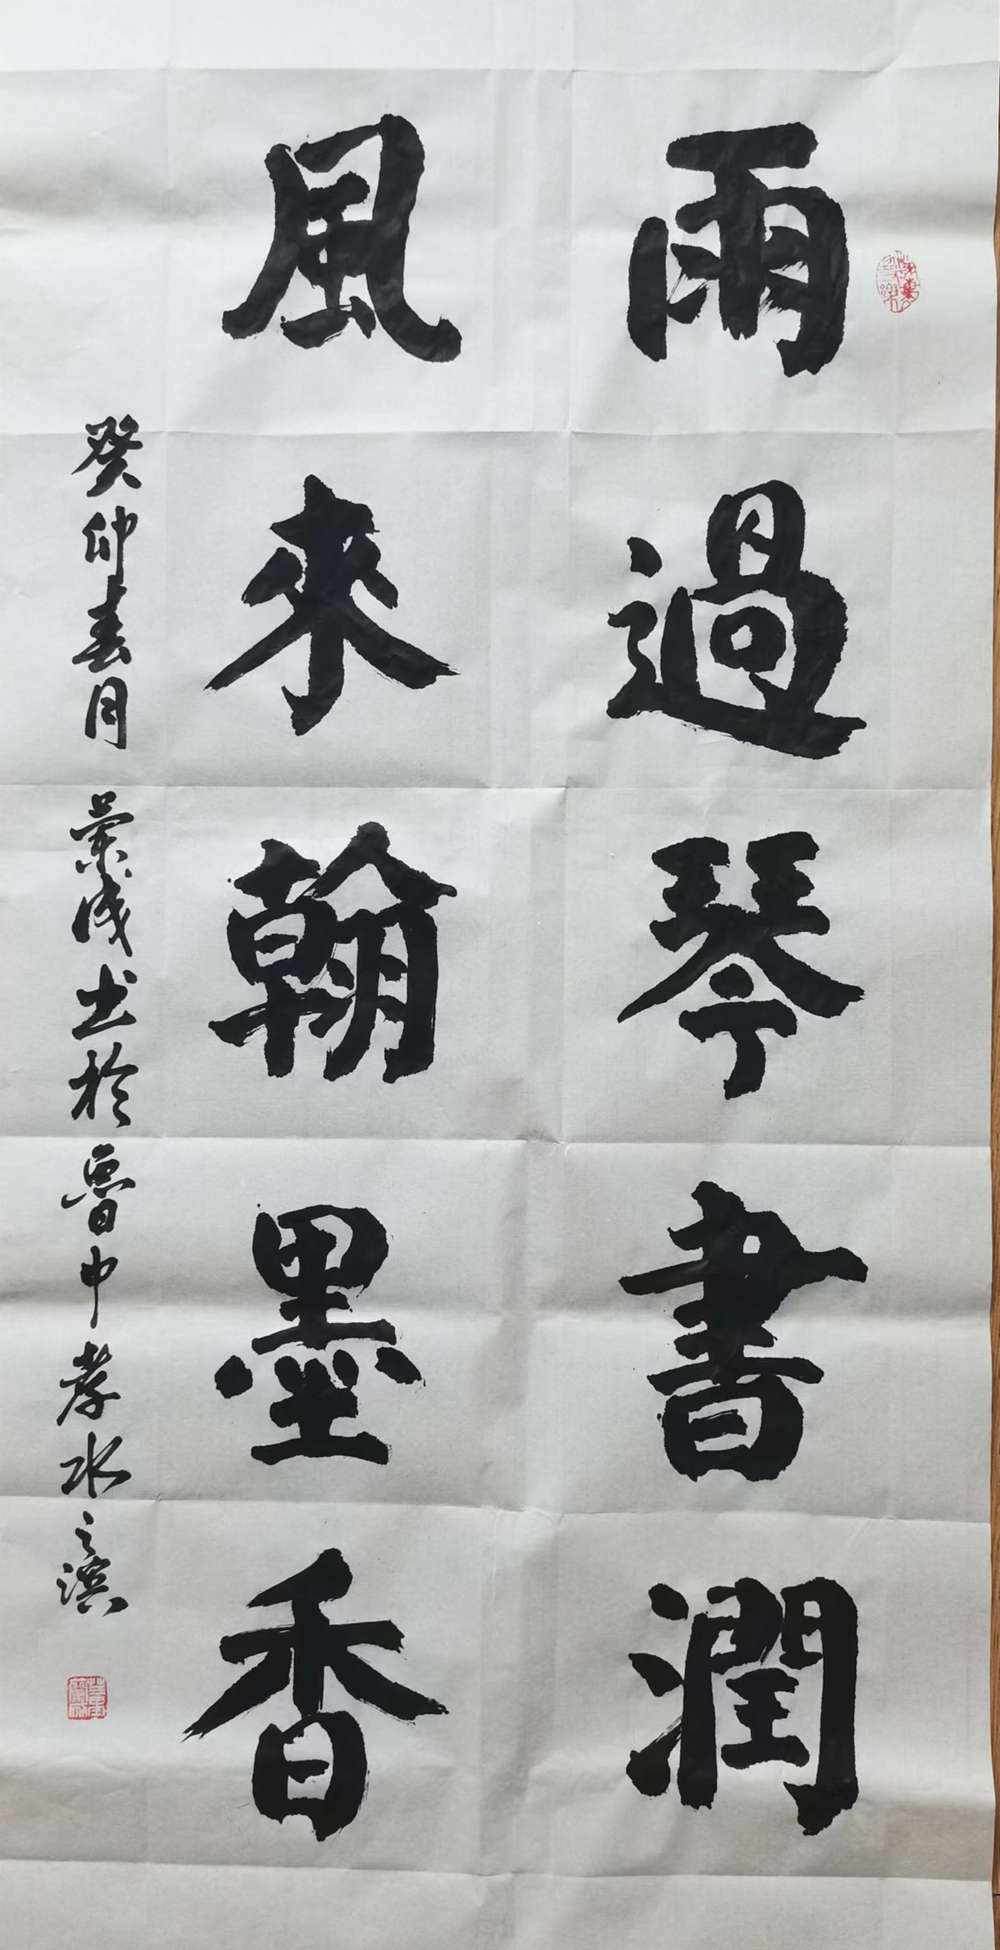 雨過琴書潤
風來翰墨香
癸卯春月 榮成书於魯中孝水之濱